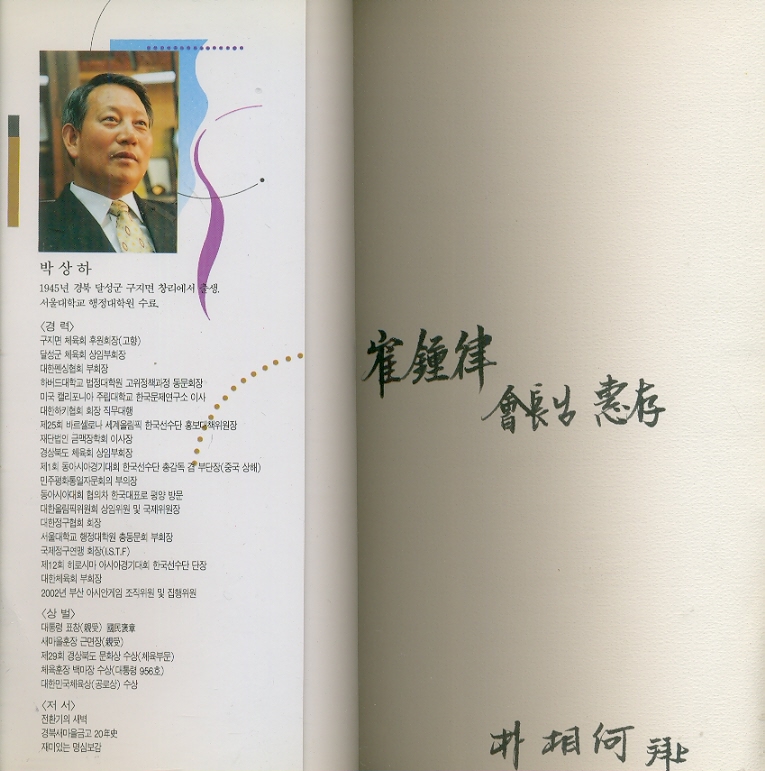 박상하
1945년 경북 달성군 구지면 창리에서 출생.
서울대학교 행정대학원 수료.
〈경 력〉
구지면 체육회 후원회장(고향)
달성군 체육회 상임부회장
대한펜싱협회 부회장
하버드대학교 법정대학원 고위정책과정 동문회장
미국 캘리포니아 주립대학교 한국문제연구소 이사
대한하키협회 회장 직무대행
제25회 바르셀로나 세계올림픽 한국선수단 홍보대책위원장
재단법인 금맥장학회 이사장
경상북도 체육회 상임부회장
제1회 동아시아경기대회 한국선수단 총감독 겸 부단장(중국 상해)
민주평화통일자문회의 부의장
동아시아대회 협의차 한국대표로 평양 방문
대한올림픽위원회 상임위원 및 국제위원장
대한정구협회 회장
서울대학교 행정대학원 총동문회 부회장
국제정구연맹 회장(I.S.T.F)
제12회 히로시마 아시아경기대회 한국선수단 단장
대한체육회 부회장
2002년 부산 아시안게임 조직위원 및 집행위원
〈상 벌〉
대통령 표창(親受) 國民褒章
새마을훈장 근면장(親受)
제29회 경상북도 문화상 수상(체육부문)
체육훈장 백마장 수상(대통령 956호)
대한민국체육상(공로상) 수상
〈저 서〉
전환기의 새벽
경북새마을금고 20年史
재미있는 명심보감
崔鍾律
會長님 惠存
朴相何 拜上